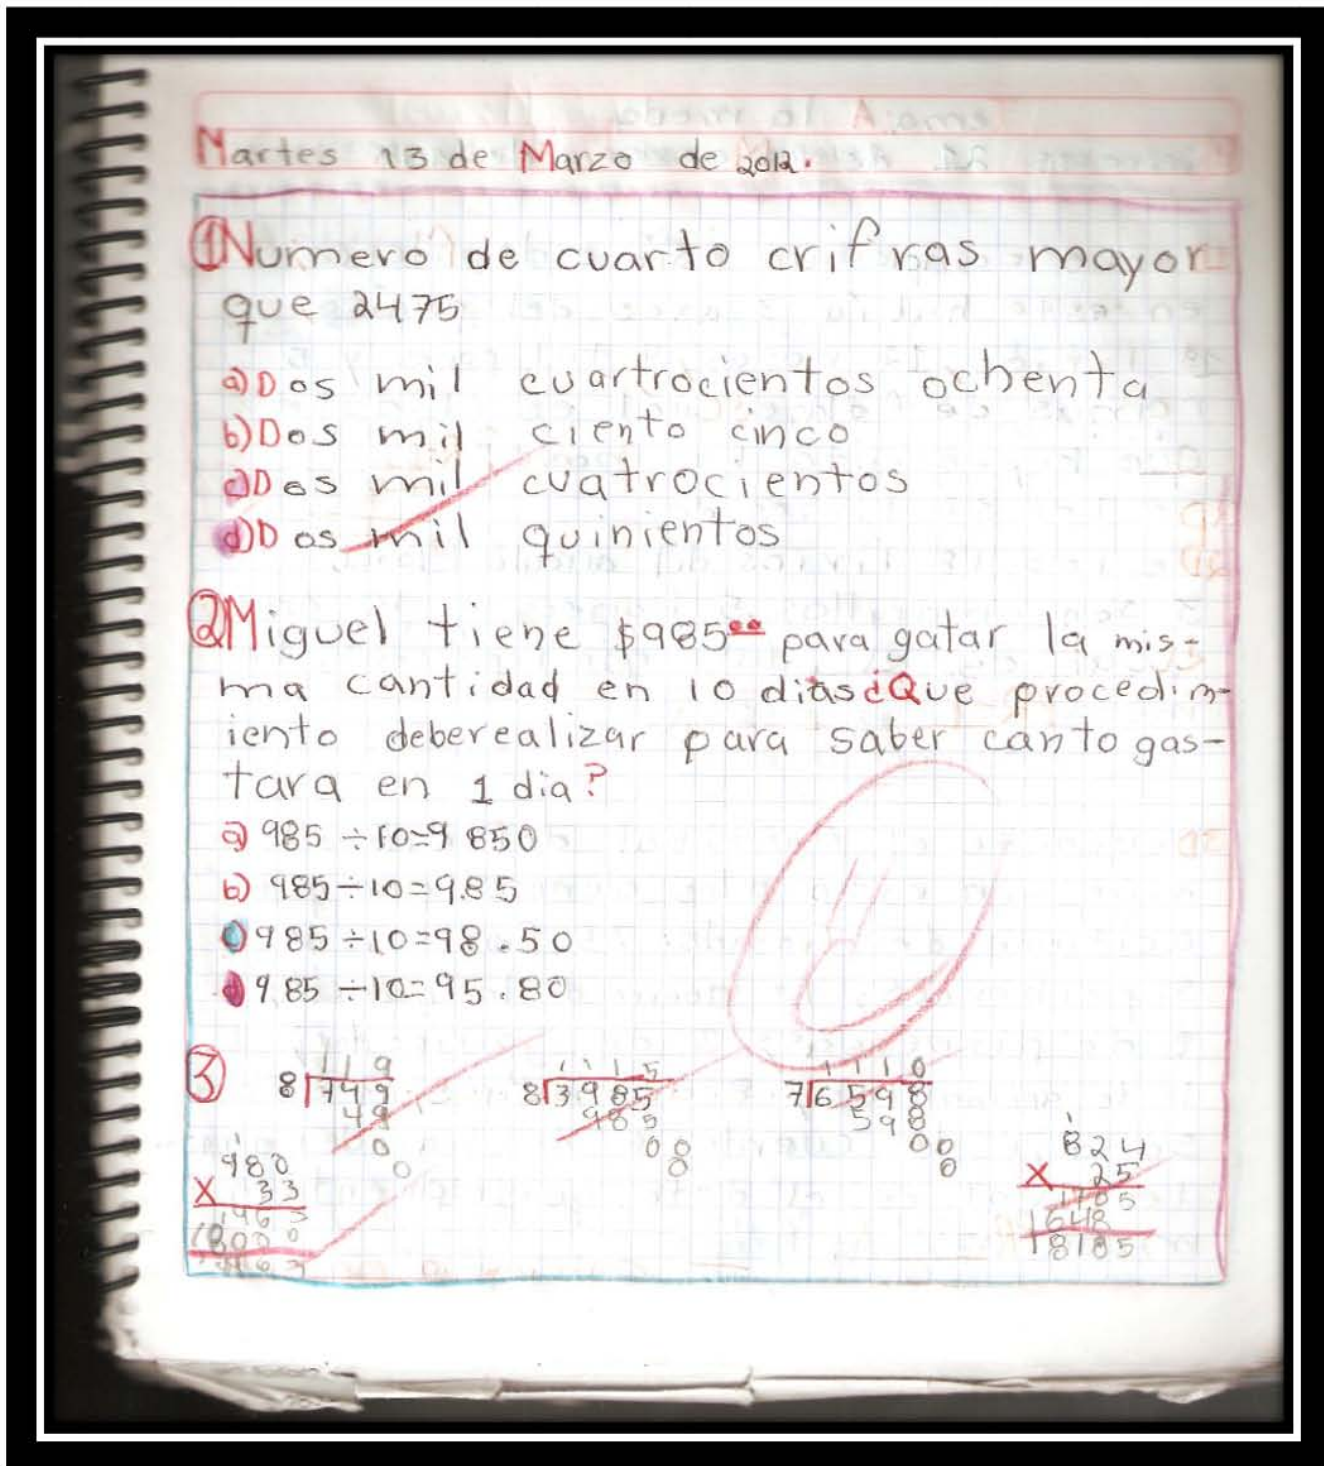 Martes 13 de Marzo de 2012.
① Numero de cuarto crifras mayor
que 2475
a) Dos mil cuartrocientos ochenta
b) Dos mil ciento cinco
c) Dos mil cuatrocientos
d) Dos mil quinientos
② Miguel tiene $985.00 para gatar la mis-
ma cantidad en 10 dias ¿Que procedim-
iento deberealizar para saber canto gas-
tara en 1 dia?
a) 985 ÷ 10 = 9 850
b) 985 ÷ 10 = 9.85
c) 985 ÷ 10 = 98.50
d) 985 ÷ 10 = 95.80
③
119
8 749
49
0
0
1115
8 3985
985
00
0
1110
7 6598
598
00
0
980
X 33
1
824
X 25
1648
18185